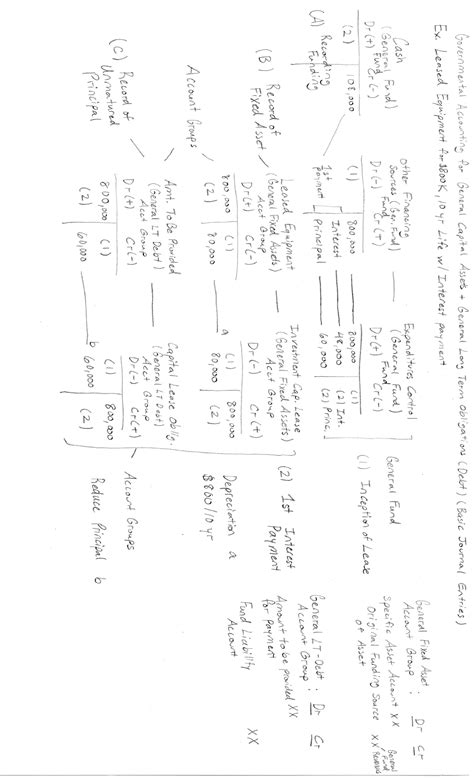 Governmental Accounting for General Capital Assets + General Long Term Obligations (Debt) (Basic Journal Entries)
Ex. Leased Equipment for $800K, 10 yr. Life w/ Interest payment
Cash
(General Fund)
Fund
Dr(+) Cr(-)
(2) 108,000
(A) Recording
Funding
Other Financing
Sources (Gen. Fund)
Fund
Dr(-) Cr(+)
(1) 800,000
1st
payment
Interest
Principal
Expenditures Control
(General Fund)
Fund
Dr(+) Cr(-)
(1) 800,000
48,000 (2) Int.
60,000 (2) Princ.
General Fund
(1) Inception of Lease
General Fixed Asset
Account Group : Dr Cr
Specific Asset Account XX
Original Funding Source XX
of Asset
(B) Record of
Fixed Asset
Leased Equipment
(General Fixed Assets)
Acct Group
Dr(+) Cr(-)
800,000 (1)
(2) 80,000
Investment Cap. Lease
(General Fixed Assets)
Acct Group
Dr(-) Cr(+)
(1) 800,000
80,000 (2)
a
(2) 1st Interest
Payment
Depreciation a
$800/10 yr
General LT-Debt : Dr Cr
Account Group
Amount to be provided XX
for Payment
Fund Liability XX
Account
Account Groups
(C) Record of
Unmatured
Principal
Amt. To Be Provided
(General LT Debt)
Acct Group
Dr(+) Cr(-)
800,000 (1)
(2) 60,000
Capital Lease Oblig.
(General LT Debt)
Acct Group
Dr(-) Cr(+)
(1) 800,000
b 60,000 (2)
Account Groups
Reduce Principal b